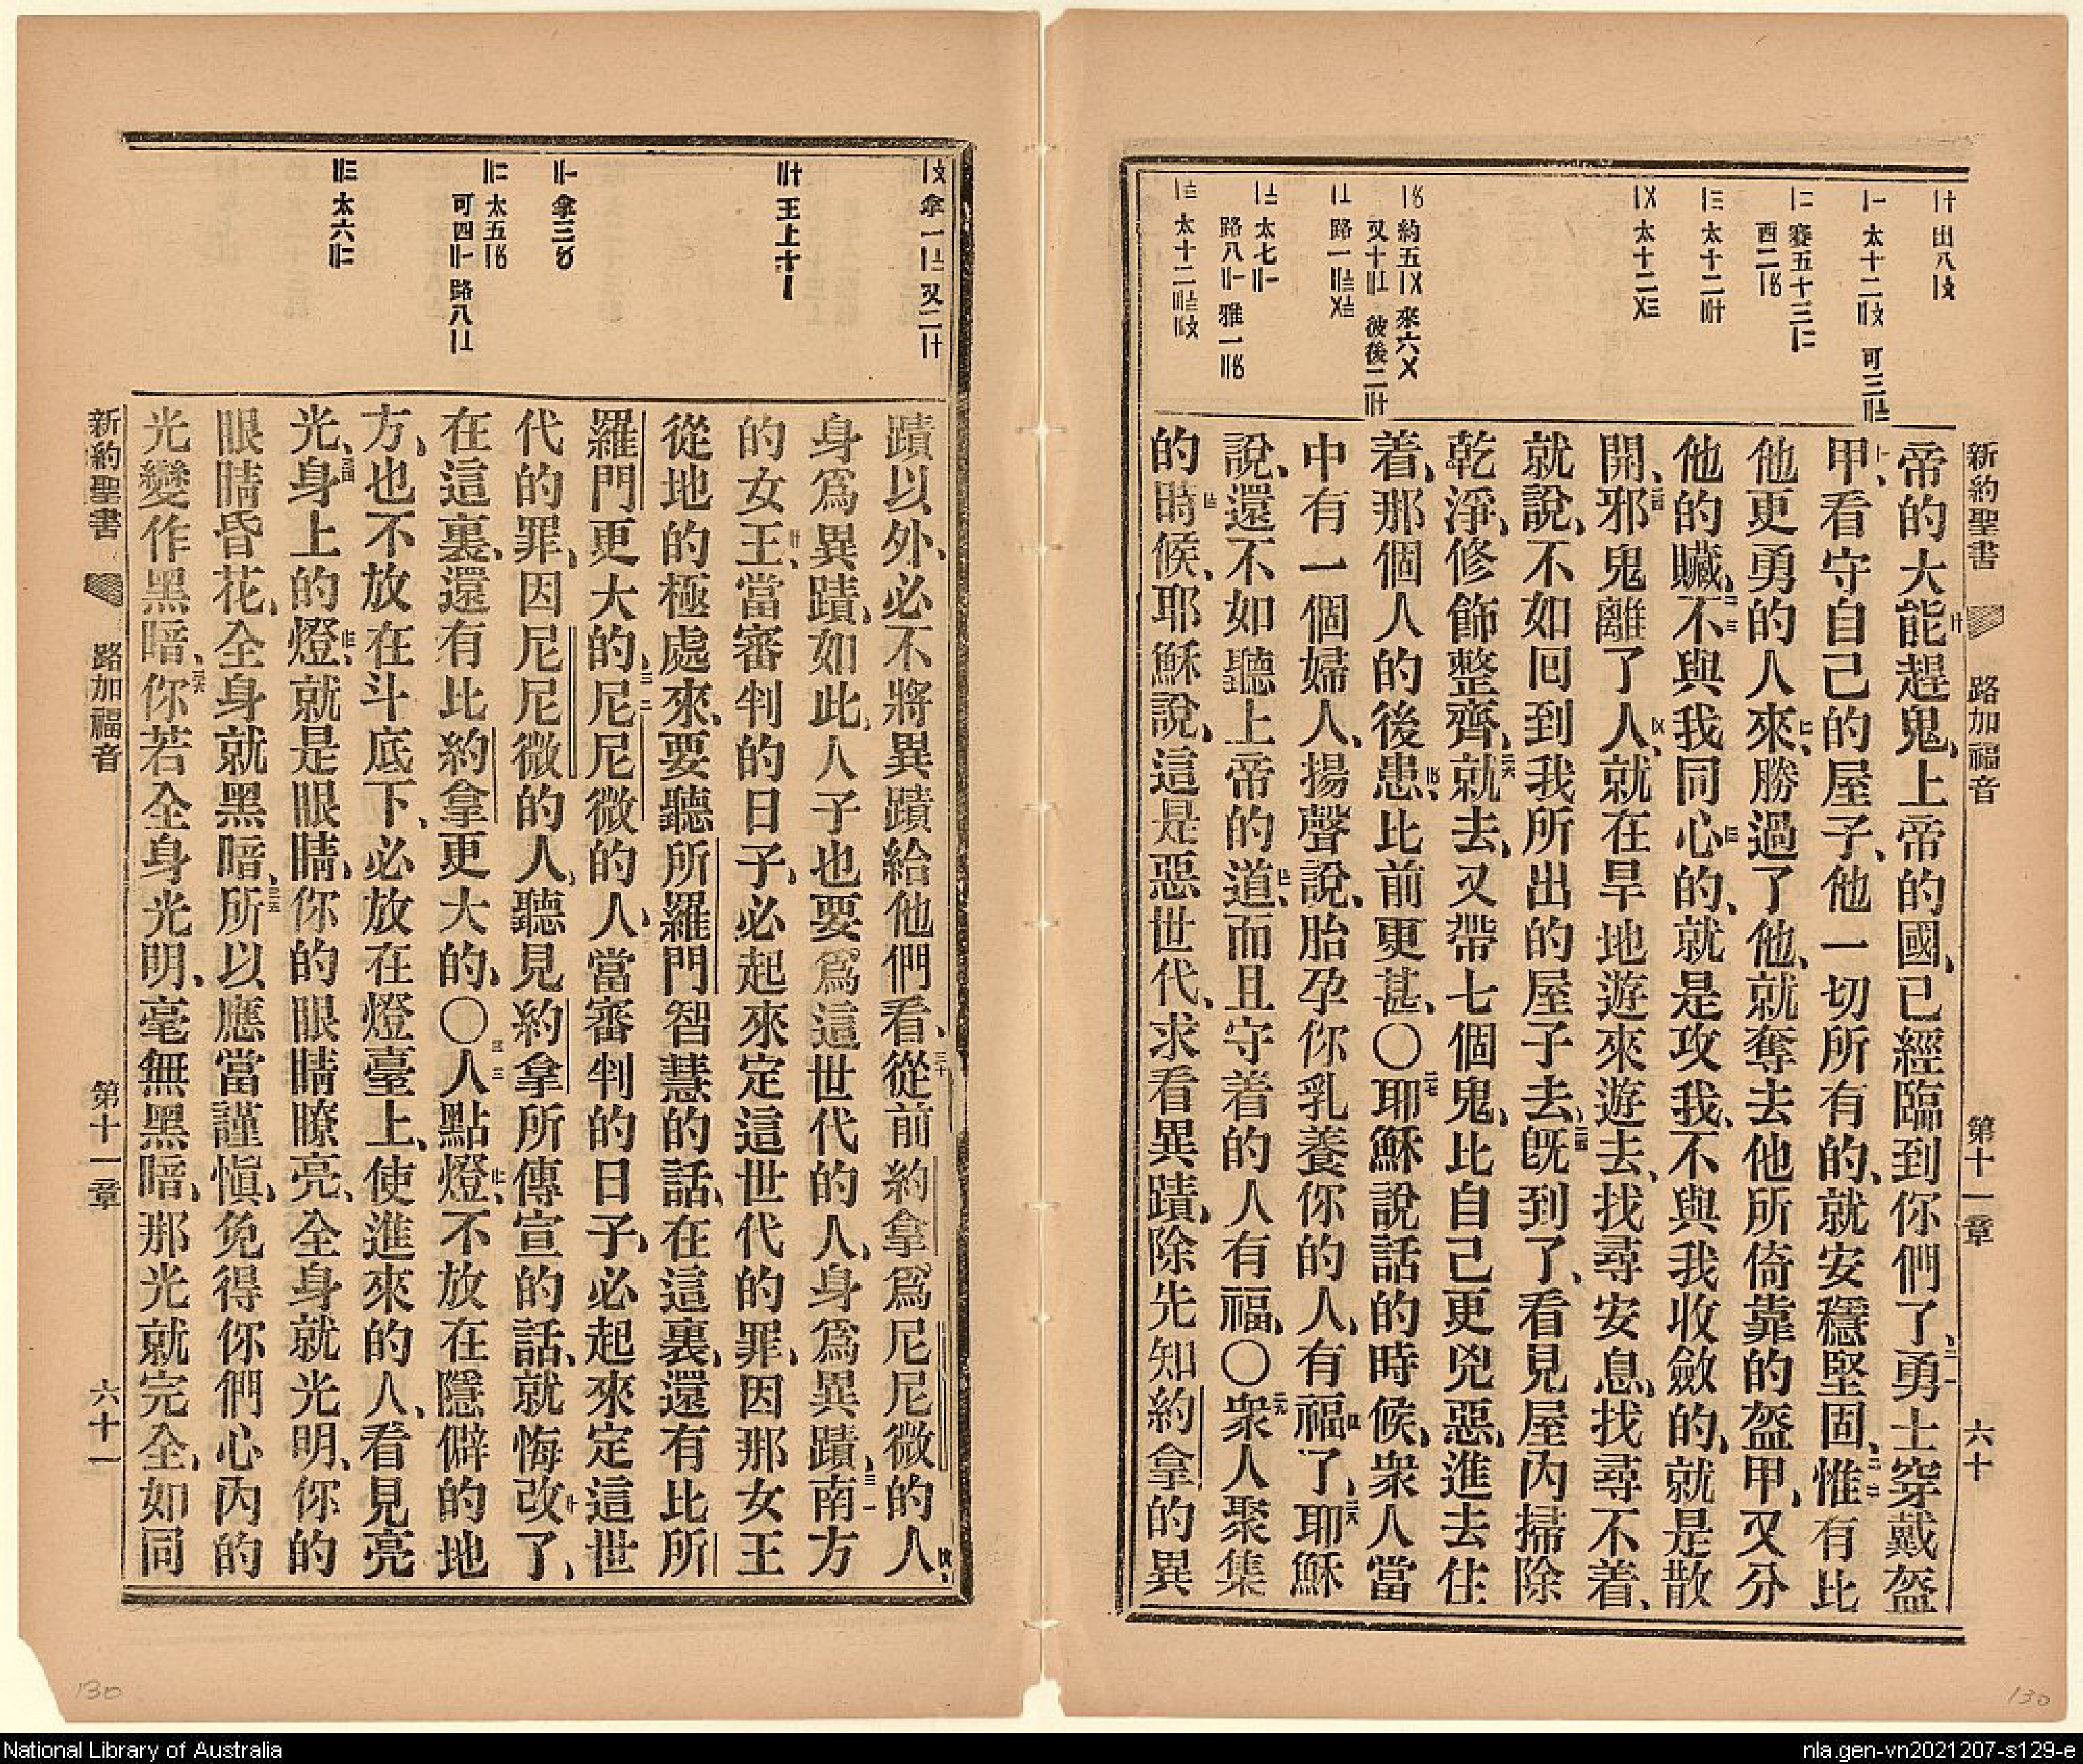 新約聖書 路加福音 第十一章 六十
帝的大能趕鬼、上帝的國、已經臨到你們了、勇士穿戴盔
甲、看守自己的屋子、他一切所有的、就安穩堅固、惟有比
他更勇的人來、勝過了他、就奪去他所倚靠的盔甲、又分
他的贓、不與我同心的、就是攻我、不與我收斂的、就是散
開、邪鬼離了人、就在旱地遊來遊去、找尋安息、找尋不着、
就說、不如囘到我所出的屋子去、旣到了、看見屋內掃除
乾淨、修飾整齊、就去、又帶七個鬼、比自己更兇惡、進去住
着、那個人的後患、比前更甚、〇耶穌說話的時候、衆人當
中有一個婦人、揚聲說、胎孕你乳養你的人、有福了、耶穌
說、還不如聽上帝的道、而且守着的人有福、〇衆人聚集
的時候、耶穌說、這是惡世代、求看異蹟、除先知約拿的異
蹟以外、必不將異蹟給他們看、從前約拿爲尼尼微的人、
身爲異蹟、如此、人子也要爲這世代的人、身爲異蹟、南方
的女王、當審判的日子、必起來定這世代的罪、因那女王
從地的極處來、要聽所羅門智慧的話、在這裏、還有比所
羅門更大的、尼尼微的人、當審判的日子、必起來定這世
代的罪、因尼尼微的人、聽見約拿所傳宣的話、就悔改了、
在這裏、還有比約拿更大的、〇人點燈、不放在隱僻的地
方、也不放在斗底下、必放在燈臺上、使進來的人、看見亮
光、身上的燈、就是眼睛、你的眼睛瞭亮、全身就光明、你的
眼睛昏花、全身就黑暗、所以應當謹愼、免得你們心內的
光變作黑暗、你若全身光明、毫無黑暗、那光就完全、如同
新約聖書 路加福音 第十一章 六十一
130
130
National Library of Australia
nla.gen-vn2021207-s129-e